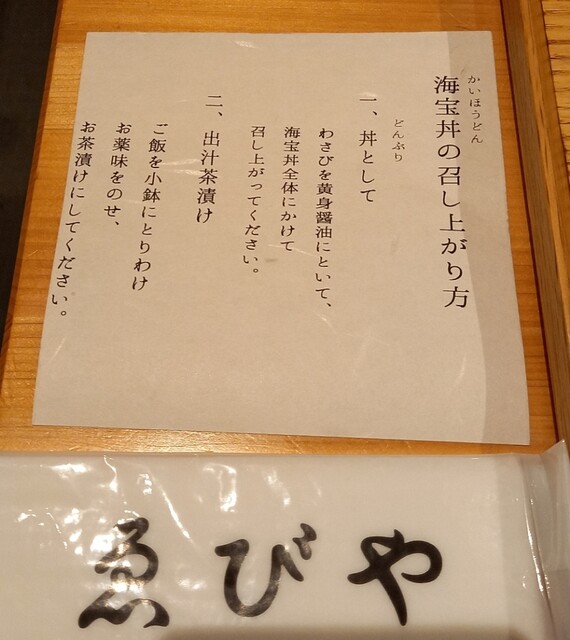 かいほうどん
海宝丼の召し上がり方
どんぶり
一、丼として
わさびを黄身醤油にといて、
海宝丼全体にかけて
召し上がってください。
二、出汁茶漬け
ご飯を小鉢にとりわけ
お薬味をのせ、
お茶漬けにしてください。
ゑびや